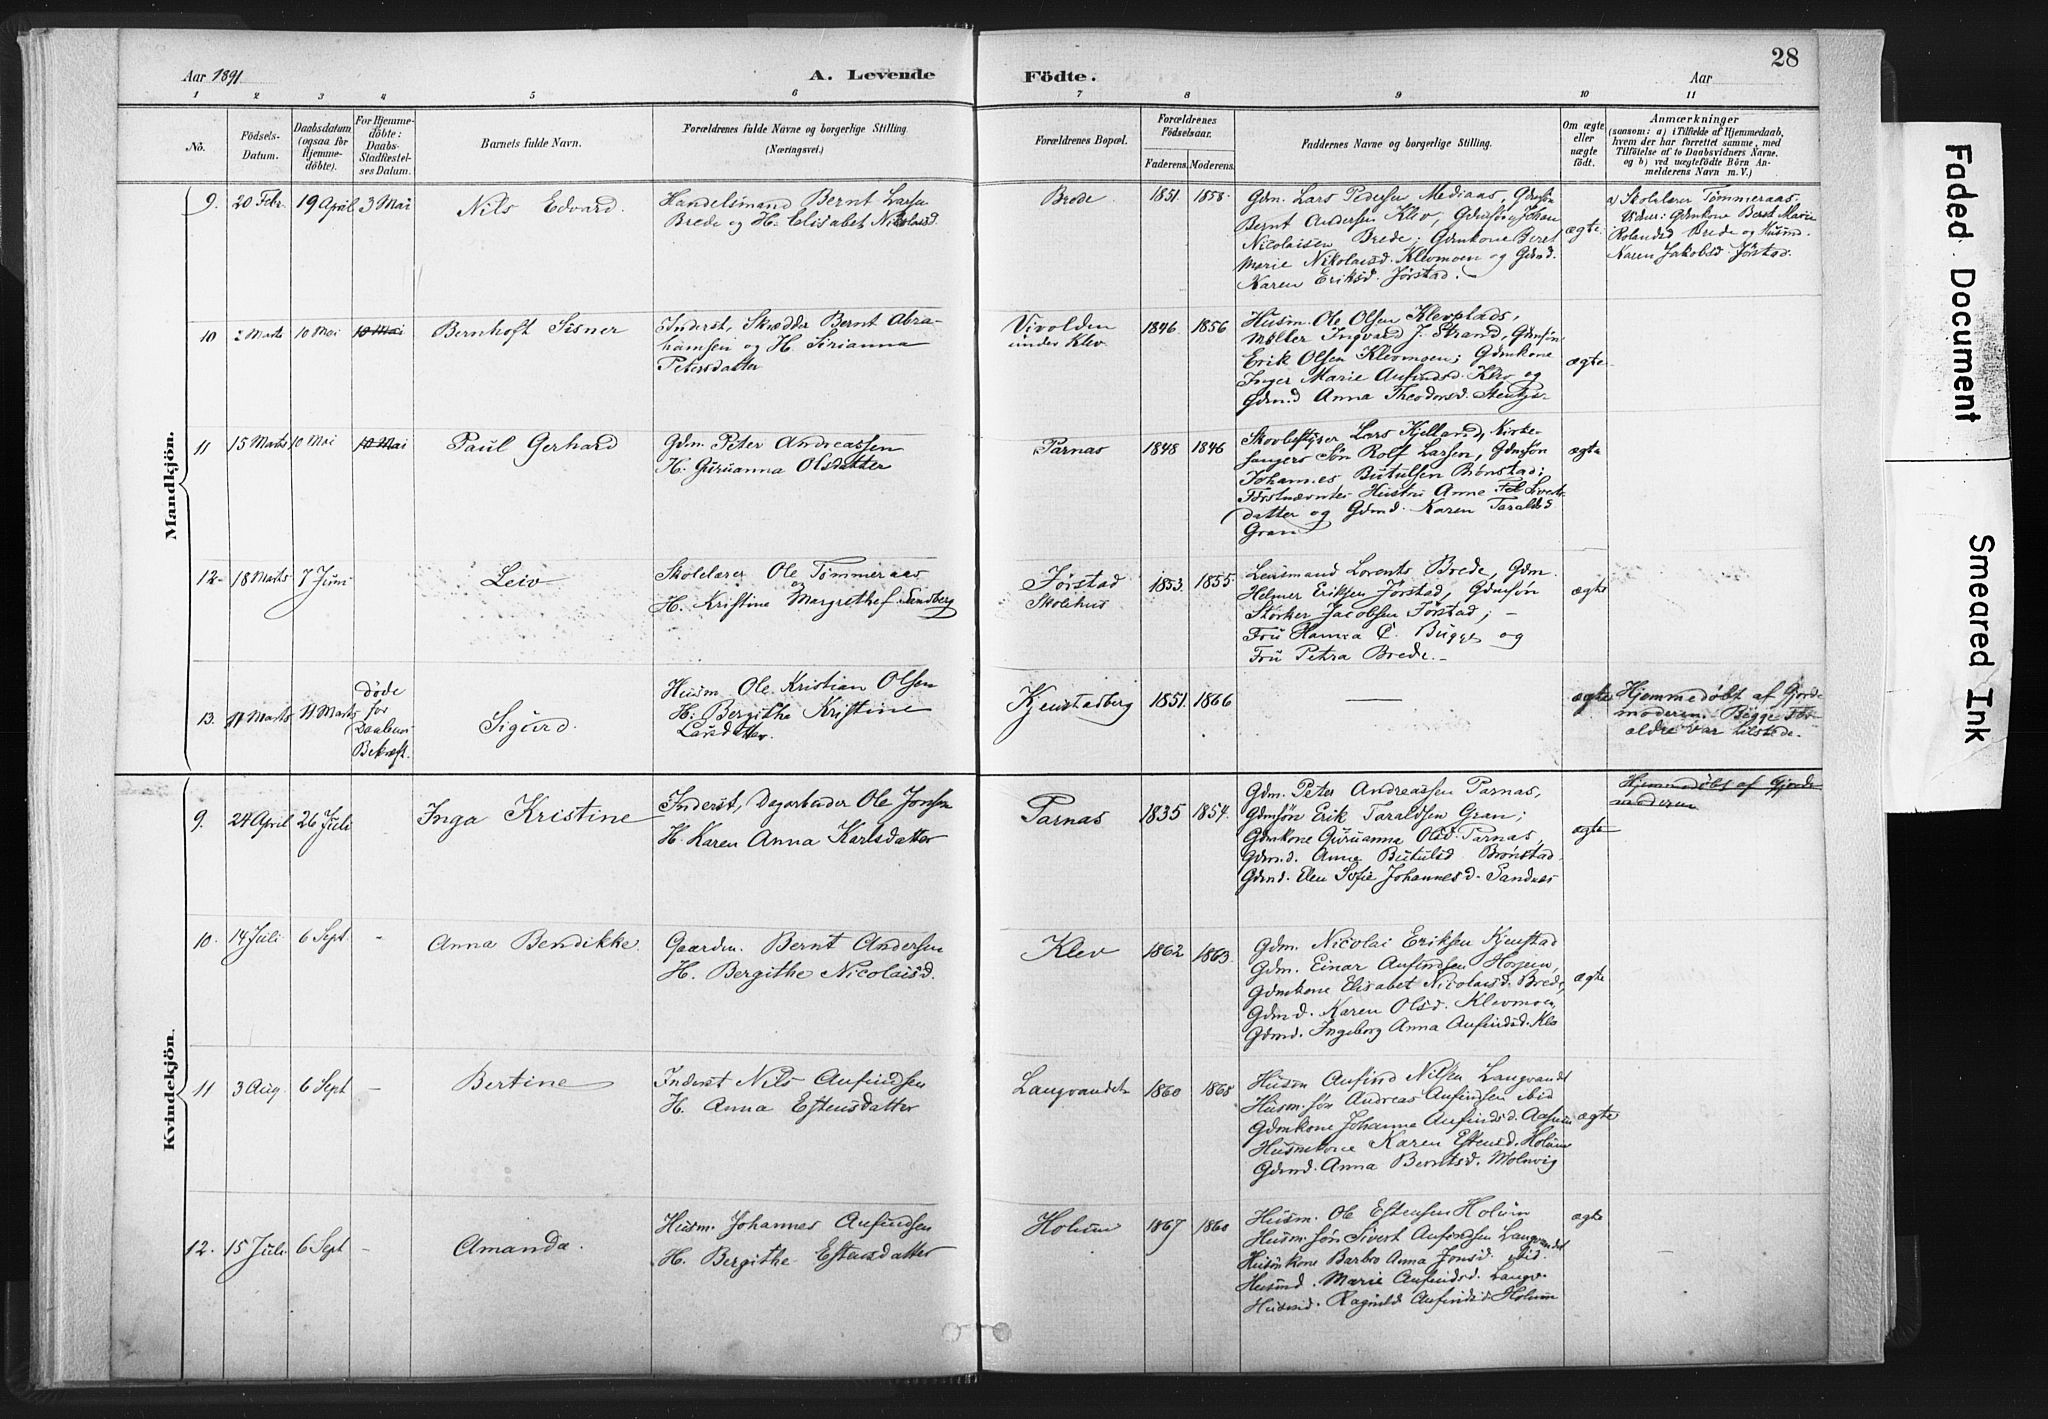 28
Aar 1891
A. Levende
Födte.
Aar
1 2 3 4 5 6 7 8 9 10 11
No.
Födsels-
Datum.
Daabsdatum
(ogsaa for
Hjemme-
döbte).
For Hjemme-
döbte:
Daabs-
Stadfæstel-
ses Datum.
Barnets fulde Navn.
Forældrenes fulde Navne og borgerlige Stilling.
(Næringsvei.)
Forældrenes Bopæl.
Forældrenes
Födselsaar.
Faderens. Moderens.
Faddernes Navne og borgerlige Stilling.
Om ægte
eller
uægte
födt.
Anmærkninger
(saasom: a) i Tilfælde af Hjemmedaab,
hvem der har forrettet samme, med
Tilföielse af to Daabsvidners Navne,
og b) ved uægtefödte Börn An-
melderens Navn m. V.)
Mandkjön.
9. 20 Febr. 19 April 3 Mai
Nils Edvard.
Handelsmand Bernt Larsen
Brede og H. Elisabet Nikolaisd.
Brede
1851. 1858.
Gdm. Lars Pedersen Mediaas, Gdmsøn
Bernt Andersen Klev, Gdmsøn Johan
Nicolaisen Brede; Gdmkone Beret
Marie Nikolaisd. Klevmoen og Gdmd.
Karen Eriksd. Jørstad.
ægte.
a) Skolelærer Tømmeraas.
Vidner: Gdmkone Beret Marie
Rolandsd Brede og Husmd.
Karen Jakobsd Jørstad.
10 2 Marts 10 Mai 10 Mai
Bernhoft Sisner
Inderst, Skrædder Bernt Abra-
hamsen og H. Sirianna
Petersdatter
Vivolden
under Klev.
1846. 1856
Husm. Ole Olsen Klevplads,
Møller Ingvard J. Strand, Gdmsøn
Erik Olsen Klevmoen; Gdmkone
Inger Marie Anfindsd. Klev og
Gdmd Anna Theodorsd.
ægte.
11 15 Marts 10 Mai 10 Mai
Paul Gerhard
Gdm. Peter Andreassen
H. Guruanna Olsdatter
Parnas
1848 1846
Skovbestyrer Lars Kjelland, Kirke-
sangers Søn Rolf Larsen, Gdmsøn
Johannes Butulsen Brønstad;
Førstnævntes Hustru Anne
datter og Gdmd. Karen Taraldsd.
Gran
ægte
12. 18 Marts 7 Juni
Leiv
Skolelærer Ole Tømmeraas
og
H. Kristine Margrethe f. Sendberg
Jørstad
Skolehus
1853. 1855.
Lensmand Lorents Brede, Gdm.
Helmer Eriksen Jørstad, Gdmsøn
Størker Jacobsen Jørstad; –
Fru Hanna C. Bugge og
Fru Petra Brede. –
ægte
13. 11 Marts 11 Marts
døde
før
Daabens
Bekræft.
Sigurd.
Husm Ole Kristian Olsen
H. Bergitha Kristine
Larsdatter.
Kjenstadberg
1851. 1866
—
ægte
Hjemmedøbt af Gjorde
moderen. Begge For-
ældre var tilstede.
Kvindekjön.
9. 24 April 26 Juli
Inga Kristine
Inderst, Dagarbeider Ole Jonsen
H. Karen Anna Karlsdatter
Parnas
1835 1854.
Gdm. Peter Andreassen Parnas,
Gdmsøn Erik Taraldsen Gran;
Gdmkone Guruanna Olsd. Parnas,
Gdmd. Anna Butulsd Brønstad
Gdmd. Elen Sofie Johannesd. Sandnes
ægte
Hjemmedøbt af Gjorde
moderen
10. 14 Juli 6 Sept. -
Anna Bendikke.
Gaardm. Bernt Andersen
H. Bergithe Nicolaisd.
Klev
1862 1863.
Gdm. Nicolai Eriksen Kjenstad
Gdm. Einar Anfindsen Horjem,
Gdmkone Elisabet Nicolaisd. Brede,
Gdmd. Karen Olsd. Klevmoen
Gdmd. Ingeborg Anna Anfindsd. Klev
ægte
11 3 Aug. 6 Sept -
Bertine
Inderst Nils Anfindsen
H. Anna Estensdatter
Langvandet
1860 1865
Husm Anfind Nilsen Langvandet
Husm.søn Andreas Anfindsen ibid
Gdmkone Johanna Anfindsd.
Husmkone Karen Estensd. Holum
Gdmd. Anna Berntsd. Molnvig
ægte
12. 15 Juli 6 Sept -
Amanda.
Husm. Johannes Anfindsen
H. Bergithe Estensdatter
Holum
1867 1860
Husm. Ole Estensen Holum
Husm.søn Sivert Anfindsen Langvandet
Husmkone Barbro Anna Jonsd. ibid.
Husmd. Marie Anfindsd. Langv.
Husmd. Ragnild Anfindsd. Holum
ægte
–
Faded Document
Smeared Ink